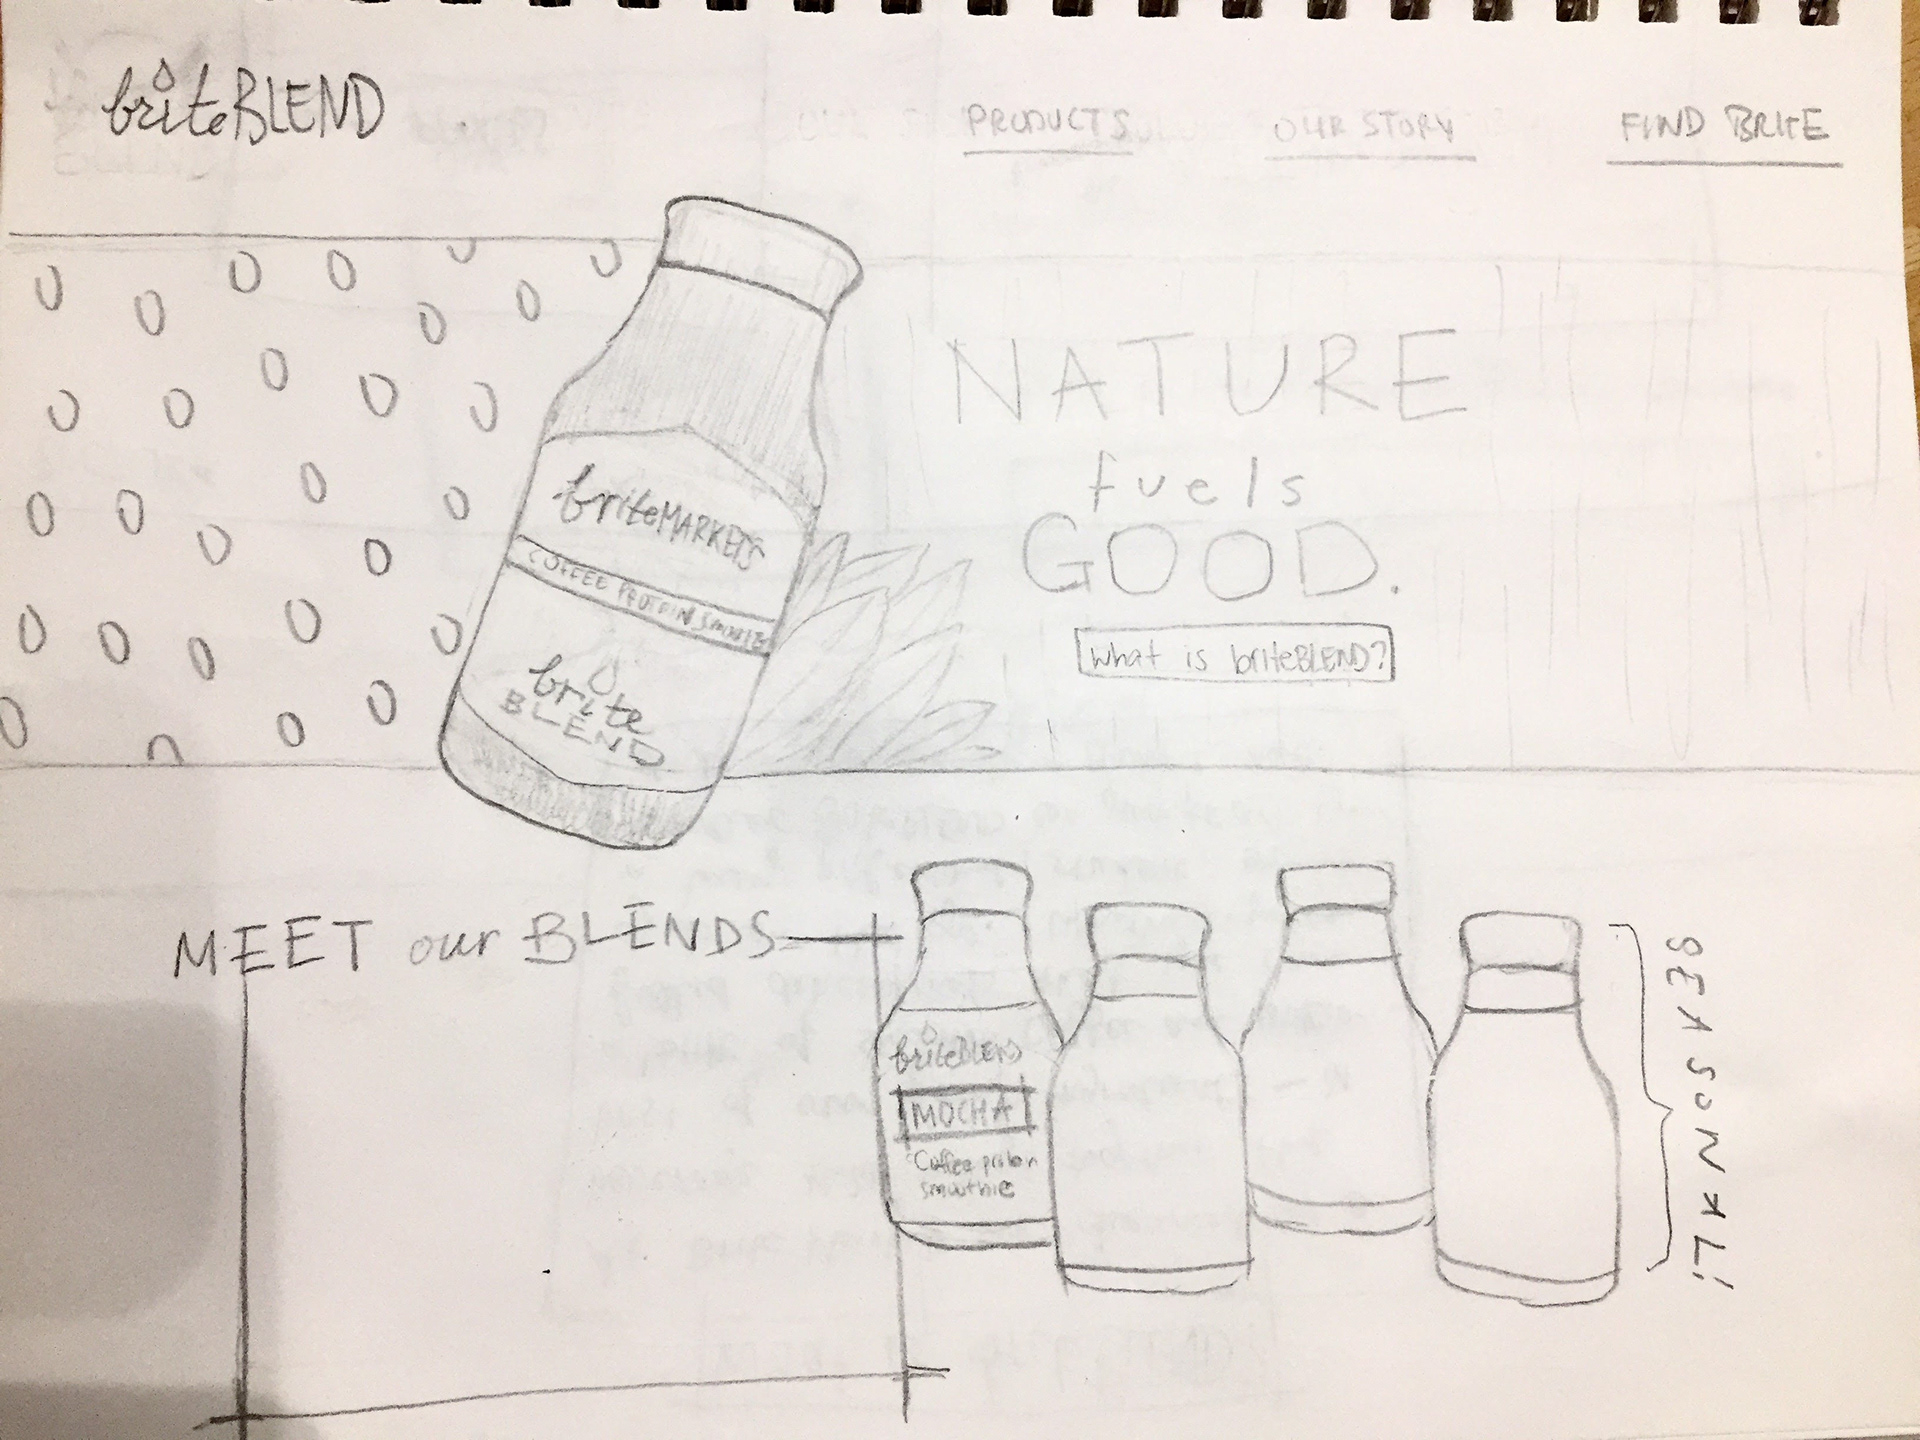 briteBLEND
PRODUCTS
OUR STORY
FIND BRITE
NATURE
fuels
GOOD.
What is briteBLEND?
briteMARKETS
COFFEE PROTEIN SMOOTHIE
brite
BLEND
MEET our BLENDS
briteBLEND
MOCHA
Coffee protein
smoothie
SEASONAL!